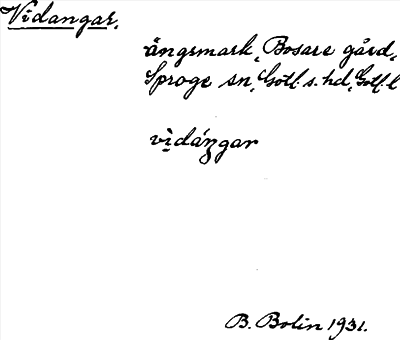 Vidangar.
ängsmark, Bosare gård,
Sproge sn, Gotl. s. hd, Gotl. l
vìdáŋgar
B. Bolin 1931.